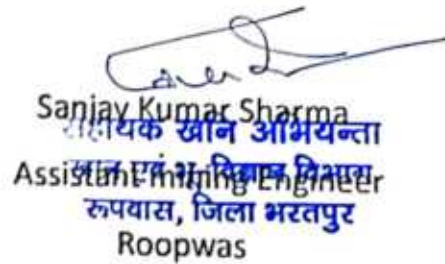 Sanjay Kumar Sharma
सहायक खनि अभियन्ता
खान एवं भू-विज्ञान विभाग
Assistant mining Engineer
रूपवास, जिला भरतपुर
Roopwas